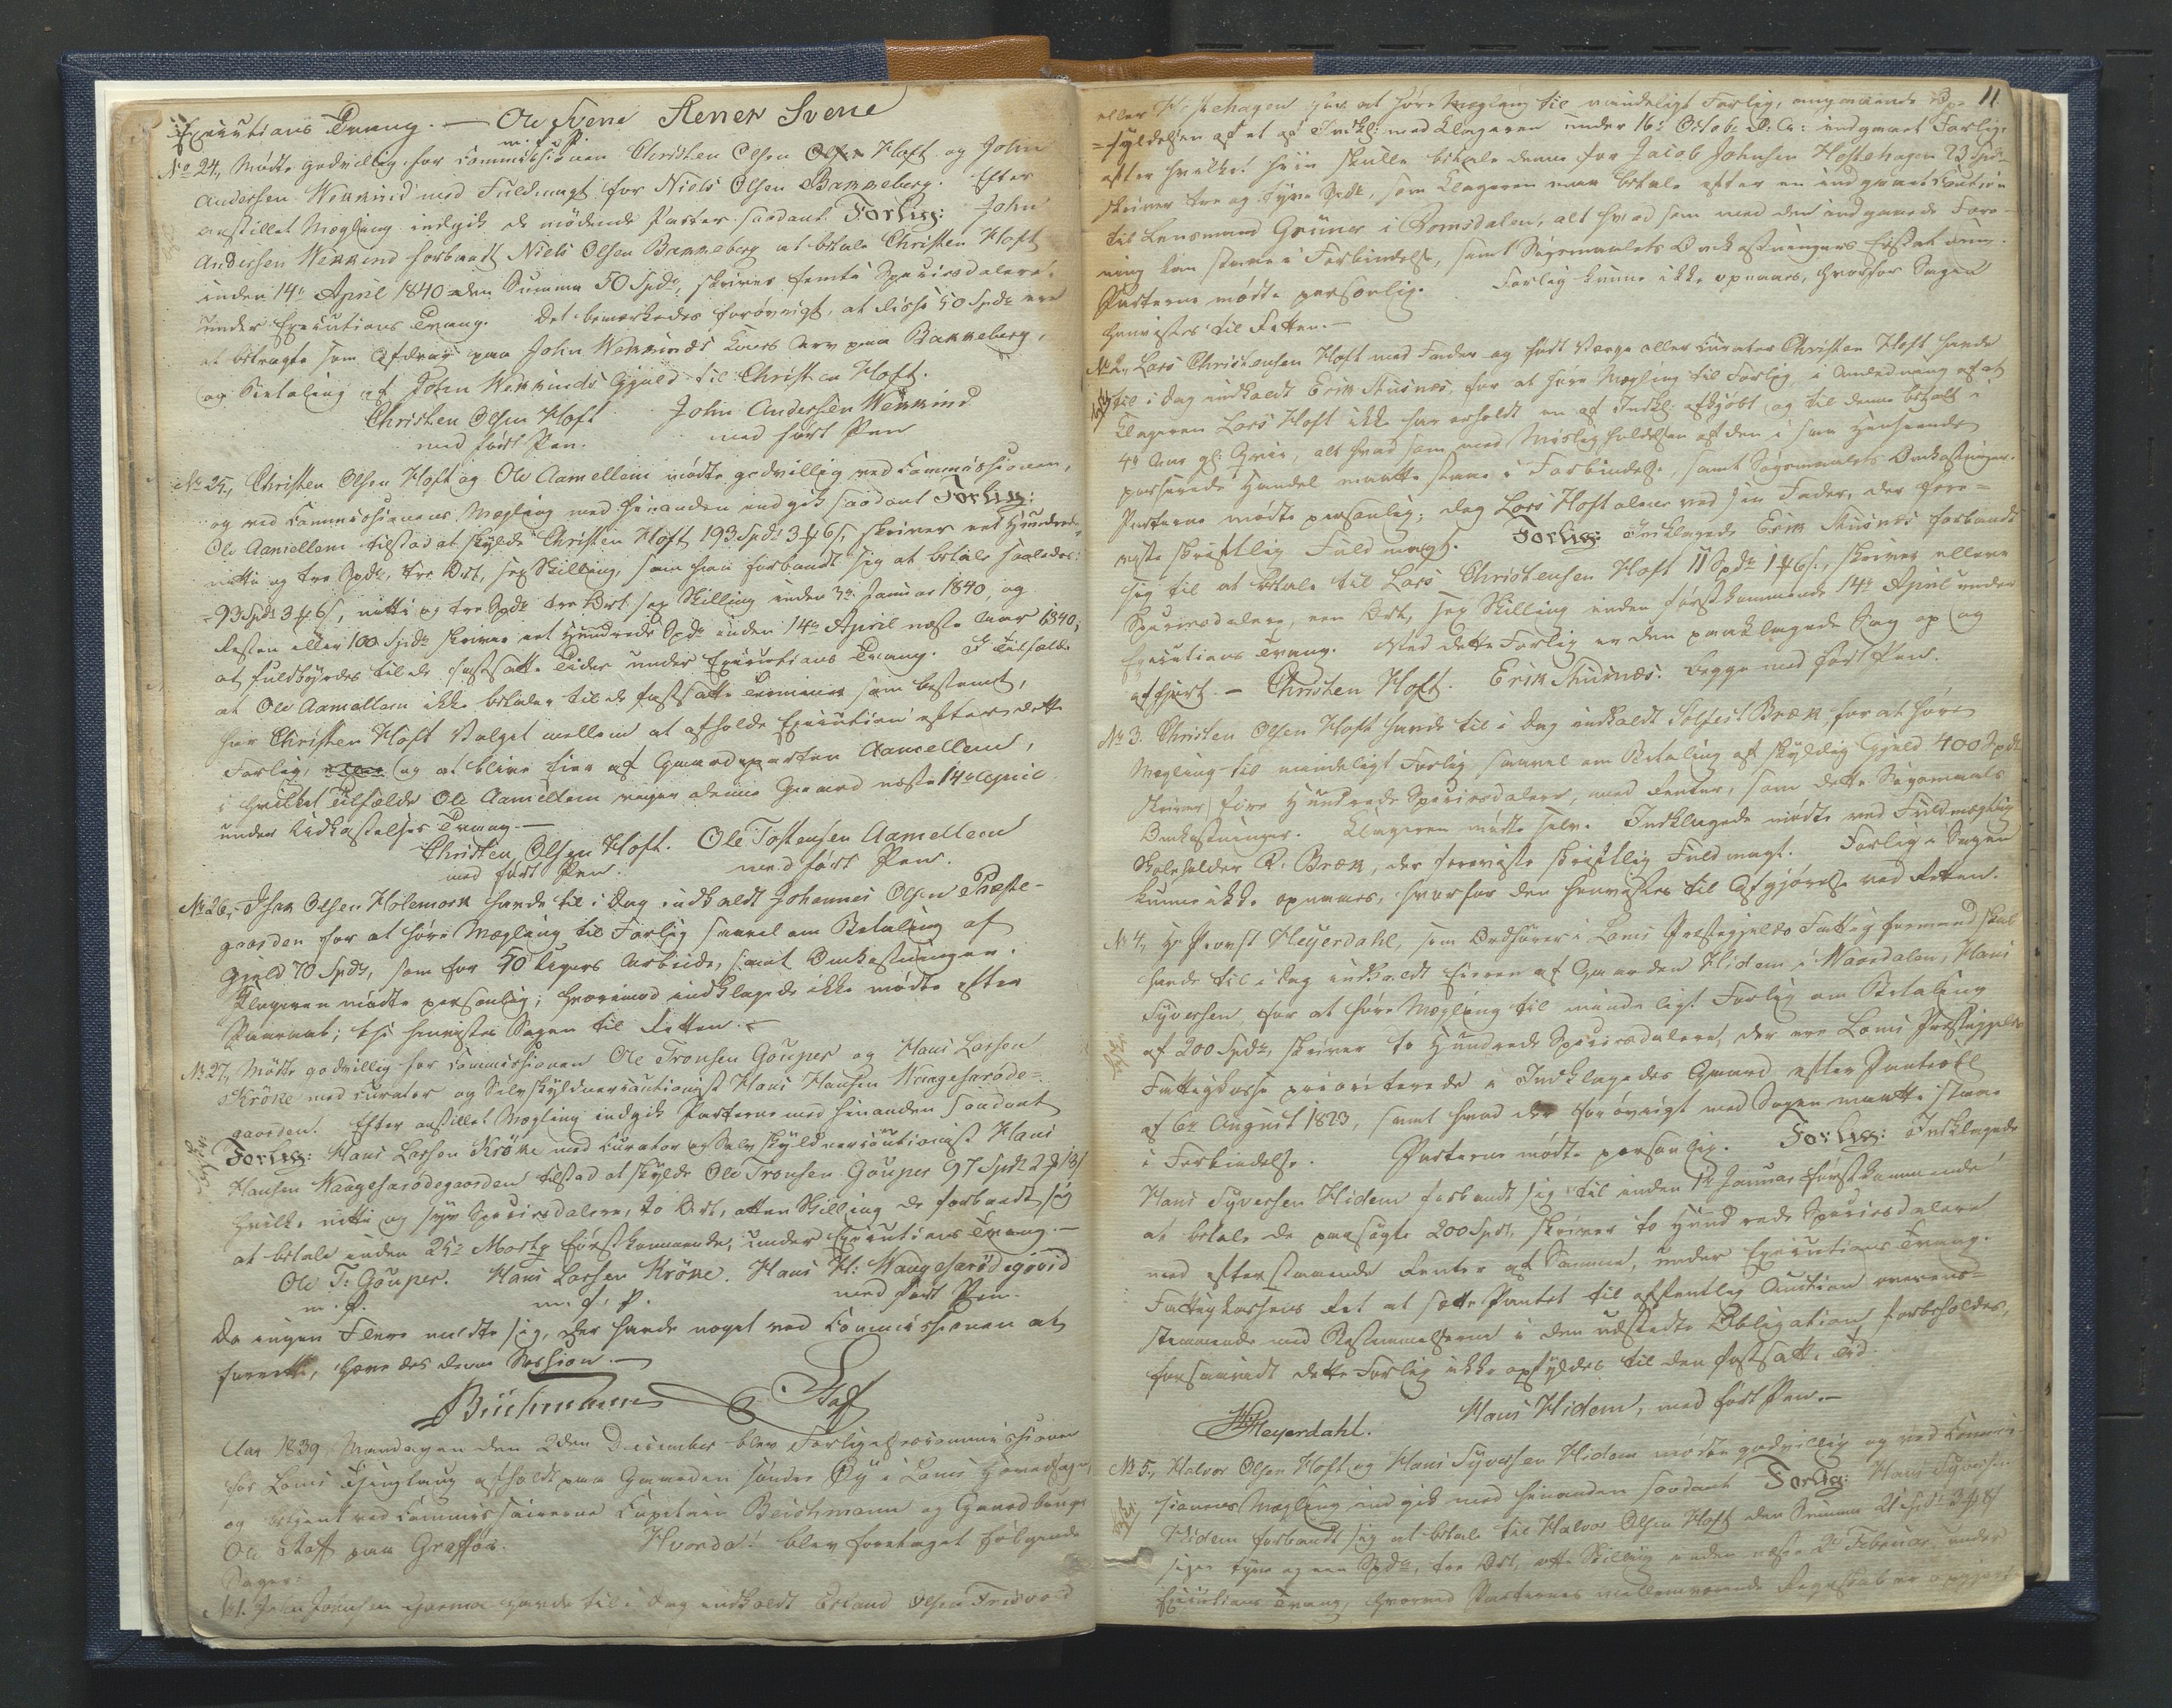 Executions Tvang. — Ole Svene Stener Svene
m. f. P.
No 24, Mødte godvillig for Commissionen Christen Olsen Hoft og John
Andersen Wekkind med Fuldmagt for Niels Olsen Bakkeberg. Efter
anstillet Mægling indgik de mødende Parter saadant Forlig: John
Andersen Wekkind forbandt Niels Olsen Bakkeberg at betale Christen Hoft
inden 14de April 1840 den Summa 50 Spd, skriver femti Speciesdalere
under Executions Tvang. Det bemærkedes forøvrigt, at disse 50 Spd ere
at betragte som Afdrag paa John Wekkinds Arv paa Bakkeberg,
og Betaling af John Wekkinds Gjæld til Christen Hoft.
Christen Olsen Hoft John Andersen Wekkind
med ført Pen. med ført Pen
No 25, Christen Olsen Hoft og Ole Aamellem mødte godvillig ved Commissionen,
og ved Commissionens Mægling med hinanden indgik saadant Forlig:
Ole Aamellem tilstod at skylde Christen Hoft 193 Spd 3 ort 6 s, skriver eet Hundrede
nitti og tre Spd, tre Ort, sex Skilling, som han forbandt sig at betale saaledes:
93 Spd 3 ort 6 s, nitti og tre Spd tre Ort sex Skilling inden 3die Januar 1840, og
Resten eller 100 Spd skriver eet Hundrede Spd inden 14de April næste Aar 1840,
at fuldbyrdes til de fastsatte Tider under Executions Tvang. I Tilfælde
at Ole Aamellem ikke betaler til de fastsatte Terminer som bestemt,
har Christen Hoft Valget mellem at afholde Execution efter dette
Forlig, og at blive Eier af Gaardparten Aamellem,
i hvilket Tilfælde Ole Aamellem denne Gaard næste 14de April
under Udkastelses Tvang. —
Christen Olsen Hoft. Ole Tostensen Aamellem
med ført Pen. med ført Pen.
No 26, Isak Olsen Holemork havde til i Dag indkaldt Johannes Olsen Præste-
gaarden for at høre Mægling til Forlig saavel om Betaling af
Gjæld 70 Spd, som for 50 Ugers Arbeide, samt Omkostninger.
Klageren mødte personlig; hvorimod indklagede ikke mødte efter
Paaraab; thi henvistes Sagen til Retten. —
No 27, Mødte godvillig for Commissionen Ole Tronsen Gouper og Hans Larsen
Kröke med Curator og Selvskyldnercautionist Hans Hansen Waagesarøde-
gaarden. Efter anstillet Mægling indgik Parterne med hinanden saadant
Forlig: Hans Larsen Kröke med Curator og Selvskyldnercautionist Hans
Hansen Waagesarødegaarden tilstod at skylde Ole Tronsen Gouper 97 Spd 2 ort 18 s
hvilke nitti og syv Speciesdalere, to Ort, atten Skilling de forbandt sig
at betale inden 25de Marty førstkommende, under Executions Tvang. —
Ole T: Gouper. Hans Larsen Kröke. Hans H: Waagesarødegaard
m. P. m. f. P. med ført Pen.
Da ingen Flere meldte sig, der havde noget ved Commissionen at
forrette, hævedes denne Session. —
Beichmann Staff
Aar 1839 Mandagen den 2den December blev Forligelsescommissionen
for Loms Thinglaug afholdt paa Gaarden søndre Øy i Loms Hovedsogn,
og betjent ved Commissairerne Capitain Beichmann og Gaardbruger
Ole Staff paa Graffer. Hvorda! blev foretaget følgende
Sager:
No 1. John Johnsen havde til i Dag indkaldt Erland Olsen Frisvold
11
eller Hestehagen for at høre Mægling til mindeligt Forlig, angaaende Op-
fyldelsen af et af Indkl: med Klageren under 16de October d. A: indgaaet Forlig,
efter hvilket hiin skulle betale denne for Jacob Johnsen Hestehagen 23 Spd
skriver tre og tyve Spd, som Klageren maa betale efter en indgaaet Caution
til Lensmand Grüner i Romsdalen, alt hvad som med den indgaaede For-
ning kan staae i Forbindelse, samt Søgsmaalets Omkostningers Erstatning.
Parterne mødte personlig. Forlig kunne ikke opnaaes, hvorfor Sagen
henvistes til Retten. —
No 2, Lars Christensen Hoft med Fader og født Værge eller Curator Christen Hoft havde
til i Dag indkaldt Erik Stusnæs, for at høre Mægling til Forlig, i Anledning af at
Klageren Lars Hoft ikke har erholdt en af Indkl: afkjøbt og til denne betalt
4de Aars gl: Qvie, alt hvad som med Misligholdelsen af den i saa Henseende
passerede Handel maatte staae i Forbindelse, samt Søgsmaalets Omkostninger.
Parterne mødte personlig; dog Lars Hoft alene ved sin Fader, der fore-
viste skriftlig Fuldmagt. Forlig: Indklagede Erik Stusnæs forbandt
sig til at betale til Lars Christensen Hoft 11 Spd 1 ort 6 s, skriver elleve
Speciesdalere, een Ort, sex Skilling inden førstkommende 14de April under
Executions Tvang. Ved dette Forlig er den paaklagede Sag op og
afgjort. — Christen Hoft. Erik Stusnæs. begge med ført Pen.
No 3. Christen Olsen Hoft havde til i Dag indkaldt Solfest Bræk, for at høre
Mægling til mindeligt Forlig saavel om Betaling af skyldig Gjæld 400 Spd
skriver fire Hundrede Speciesdalere, med Renter, som dette Søgsmaals
Omkostninger. Klageren mødte selv. Indklagede mødte ved Fuldmægtig
Skoleholder R. Bræk, der foreviste skriftlig Fuldmagt. Forlig i Sagen
kunne ikke opnaaes, hvorfor den henvistes til Afgjørelse ved Retten.
No 4, Hr Provst Heyerdahl, som Ordfører i Loms Præstegjelds Fattigformandskab
havde til i Dag indkaldt Eieren af Gaarden Hidem i Waardalen, Hans
Syversen for at høre Mægling til mindeligt Forlig om Betaling
af 200 Spd, skriver to Hundrede Speciesdalere, der ere Loms Præstegjelds
Fattigkasse prioriterede i Indklagedes Gaard efter Panteobl
af 6te August 1823, samt hvad der forøvrigt med Sagen maatte staae
i Forbindelse. Parterne mødte personlig. Forlig: Indklagede
Hans Syversen Hidem forbandt sig til inden 1ste Januar førstkommende
at betale de paasøgte 200 Spd, skriver to Hundrede Speciesdalere
med efterstaaende Renter af Samme, under Executions Tvang.
Fattigkassens Ret at sætte Pantet til offentlig Auction overens-
stemmende med Bestemmelserne i den udstedte Obligation forbeholdes,
forsaavidt dette Forlig ikke opfyldes til den fastsatte Tid.
Heyerdahl. Hans Hidem, med ført Pen. —
No 5, Halvor Olsen Hoft og Hans Syversen Hidem mødte godvillig og ved Commis-
sionens Mægling indgik med hinanden saadant Forlig: Hans Syversen
Hidem forbandt sig at betale til Halvor Olsen Hoft den Summa 21 Spd 3 ort 8 s
siger tyve og een Spd, tre Ort, otte Skilling inden næste 2de Februar, under
Executions Tvang, hvorved Parternes mellemværende Regnskab er opgjort